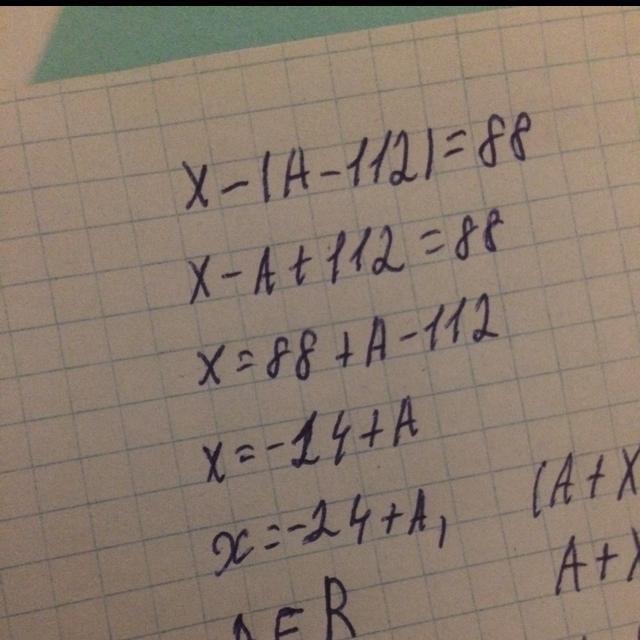 X-(A-112)=88
X-A+112=88
X=88+A-112
X=-24+A
x=-24+A,
(A+X
A+X
A∈R